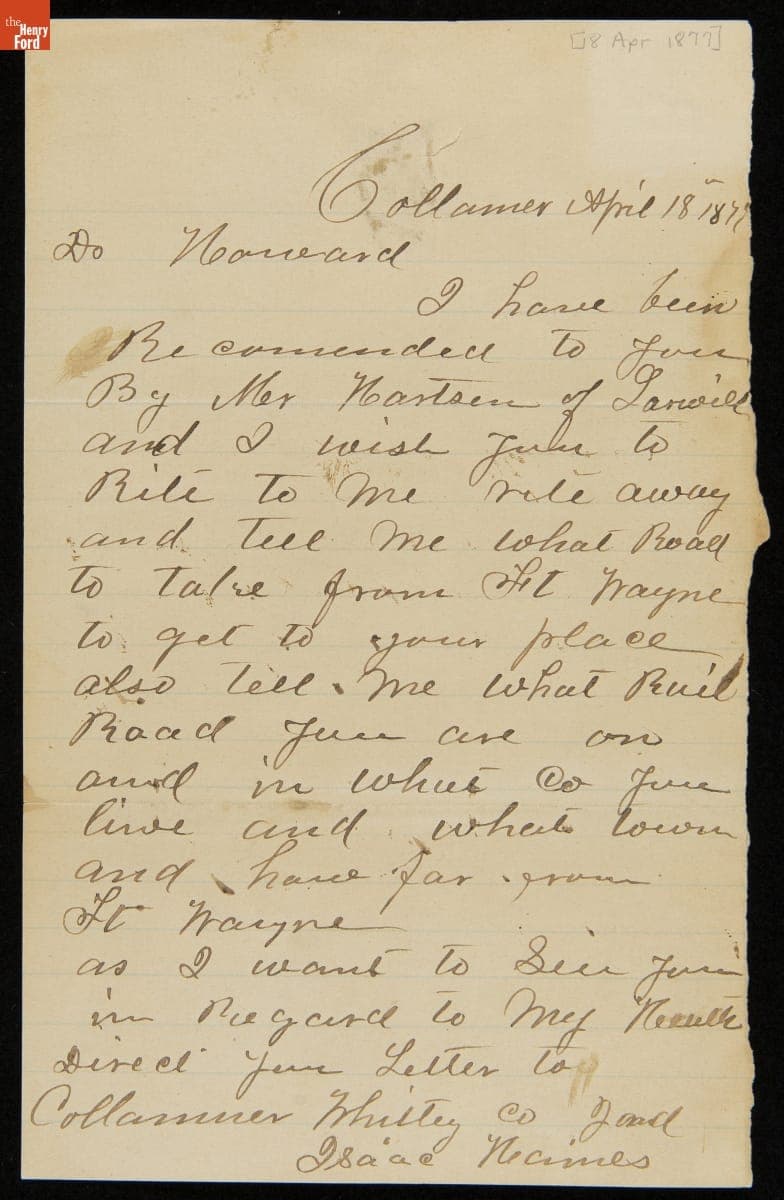 the
Henry
Ford
[18 Apr 1877]
Collamer April 18 1877
Do Howard
I have been
Recomended to you
By Mr Hartsen of Larwill
and I wish you to
Rite to Me rite away
and tell Me what Road
to take from Ft Wayne
to get to your place
also tell Me what Rail
Road you are on
and in what Co you
live and what town
and how far from
Ft Wayne
as I want to See you
in Regard to My Health
Direct your Letter to
Collammer Whitley Co Ind
Isaac Haines